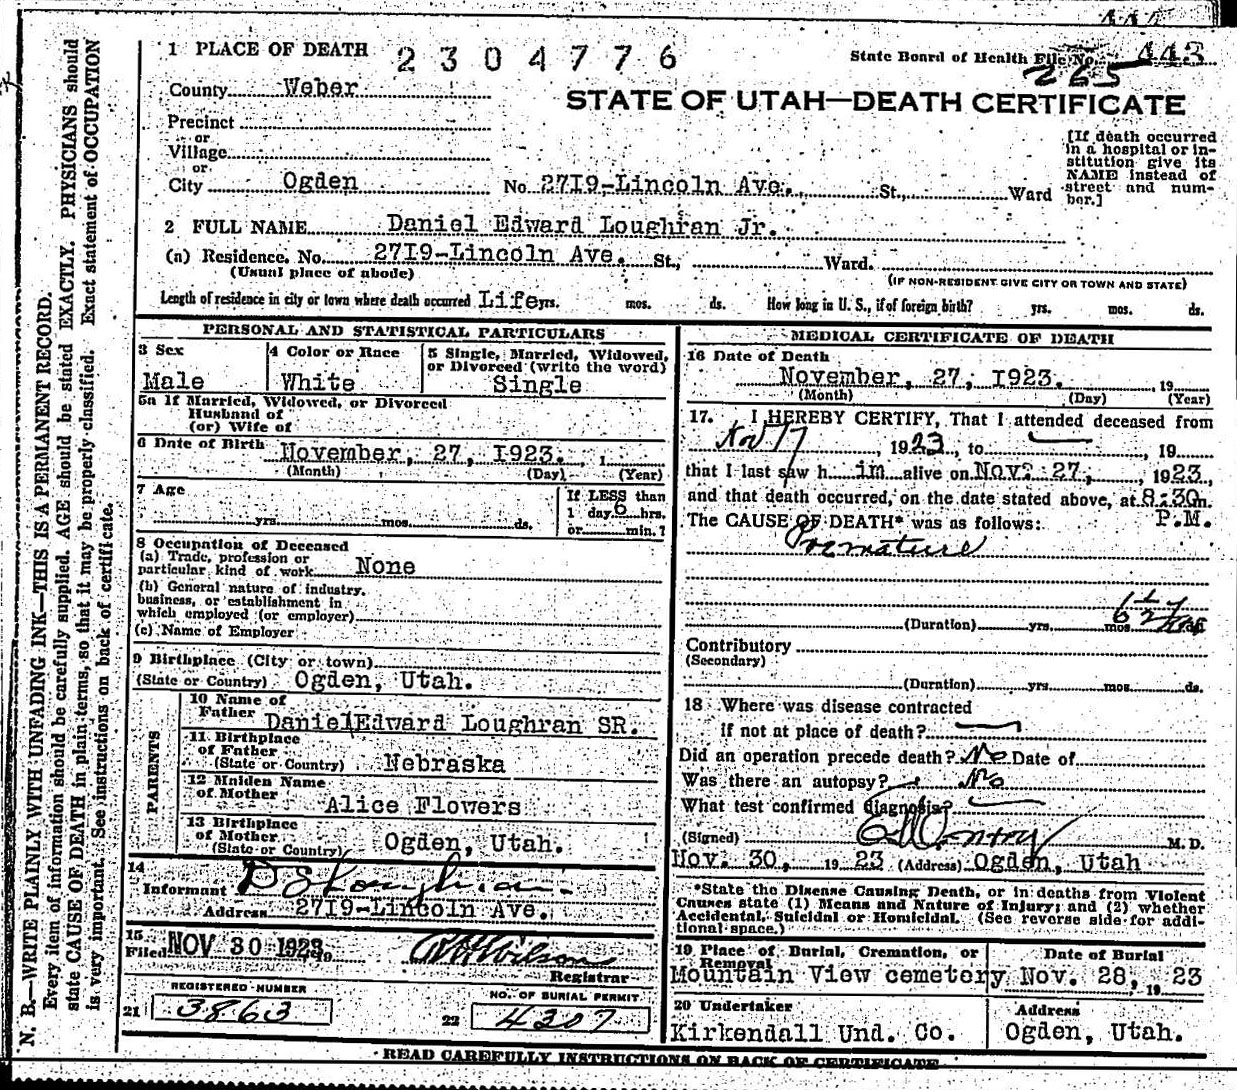 1 PLACE OF DEATH 2304776 State Board of Health File No. 443
265
County Weber
STATE OF UTAH—DEATH CERTIFICATE
Precinct
or
Village
or
City Ogden No. 2719-Lincoln Ave. St., Ward
[If death occurred in a hospital or in-
stitution give its
NAME instead of
street and num-
ber.]
2 FULL NAME Daniel Edward Loughran Jr.
(a) Residence. No. 2719-Lincoln Ave. St., Ward.
(Usual place of abode) (IF NON-RESIDENT GIVE CITY OR TOWN AND STATE)
Length of residence in city or town where death occurred Life yrs. mos. ds. How long in U. S., if of foreign birth? yrs. mos. ds.
PERSONAL AND STATISTICAL PARTICULARS
3 Sex
Male
4 Color or Race
White
5 Single, Married, Widowed,
or Divorced (write the word)
Single
5a If Married, Widowed, or Divorced
Husband of
(or) Wife of
6 Date of Birth November, 27, 1923.
(Month) (Day) (Year)
7 Age
yrs. mos. ds.
If LESS than
1 day 6 hrs.
or min.?
8 Occupation of Deceased
(a) Trade, profession or
particular kind of work None
(b) General nature of industry,
business, or establishment in
which employed (or employer)
(c) Name of Employer
9 Birthplace (City or town)
(State or Country) Ogden, Utah.
PARENTS
10 Name of
Father Daniel Edward Loughran SR.
11 Birthplace
of Father
(State or Country) Nebraska
12 Maiden Name
of Mother Alice Flowers
13 Birthplace
of Mother
(State or Country) Ogden, Utah.
14
Informant D E Loughran
Address 2719-Lincoln Ave.
15
Filed NOV 30 1923 19 Wilson
Registrar
REGISTERED NUMBER
21 3863
NO. OF BURIAL PERMIT
22 4307
MEDICAL CERTIFICATE OF DEATH
16 Date of Death
November, 27, 1923. , 19
(Month) (Day) (Year)
17. I HEREBY CERTIFY, That I attended deceased from
Nov 17, 1923, to , 19
that I last saw h im alive on Nov. 27, , 1923,
and that death occurred, on the date stated above, at 8:30 m.
P.M.
The CAUSE OF DEATH* was as follows:
Premature
6 1/2
(Duration) yrs. mos. ds.
Contributory
(Secondary)
(Duration) yrs. mos. ds.
18 Where was disease contracted
if not at place of death?
Did an operation precede death? No Date of
Was there an autopsy? No
What test confirmed diagnosis?
(Signed) M. D.
Nov. 30, 1923 (Address) Ogden, Utah
*State the Disease Causing Death, or in deaths from Violent
Causes state (1) Means and Nature of Injury; and (2) whether
Accidental, Suicidal or Homicidal. (See reverse side for addi-
tional space.)
19 Place of Burial, Cremation, or
Removal
Mountain View cemetery
Date of Burial
Nov. 28, 19 23
20 Undertaker
Kirkendall Und. Co.
Address
Ogden, Utah.
READ CAREFULLY INSTRUCTIONS ON BACK OF CERTIFICATE
N. B.—WRITE PLAINLY WITH UNFADING INK—THIS IS A PERMANENT RECORD.
Every item of information should be carefully supplied. AGE should be stated EXACTLY. PHYSICIANS should
state CAUSE OF DEATH in plain terms, so that it may be properly classified. Exact statement of OCCUPATION
is very important. See instructions on back of certificate.